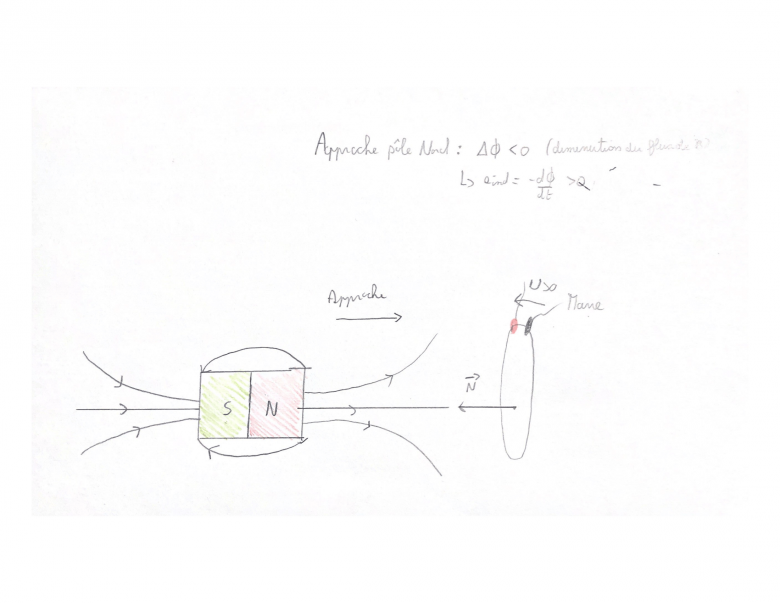 Approche pôle Nord : Δϕ < 0 (diminution du flux de
↳ eind = -dϕ/dt > 0.
Approche
U>0
Masse
N
S N